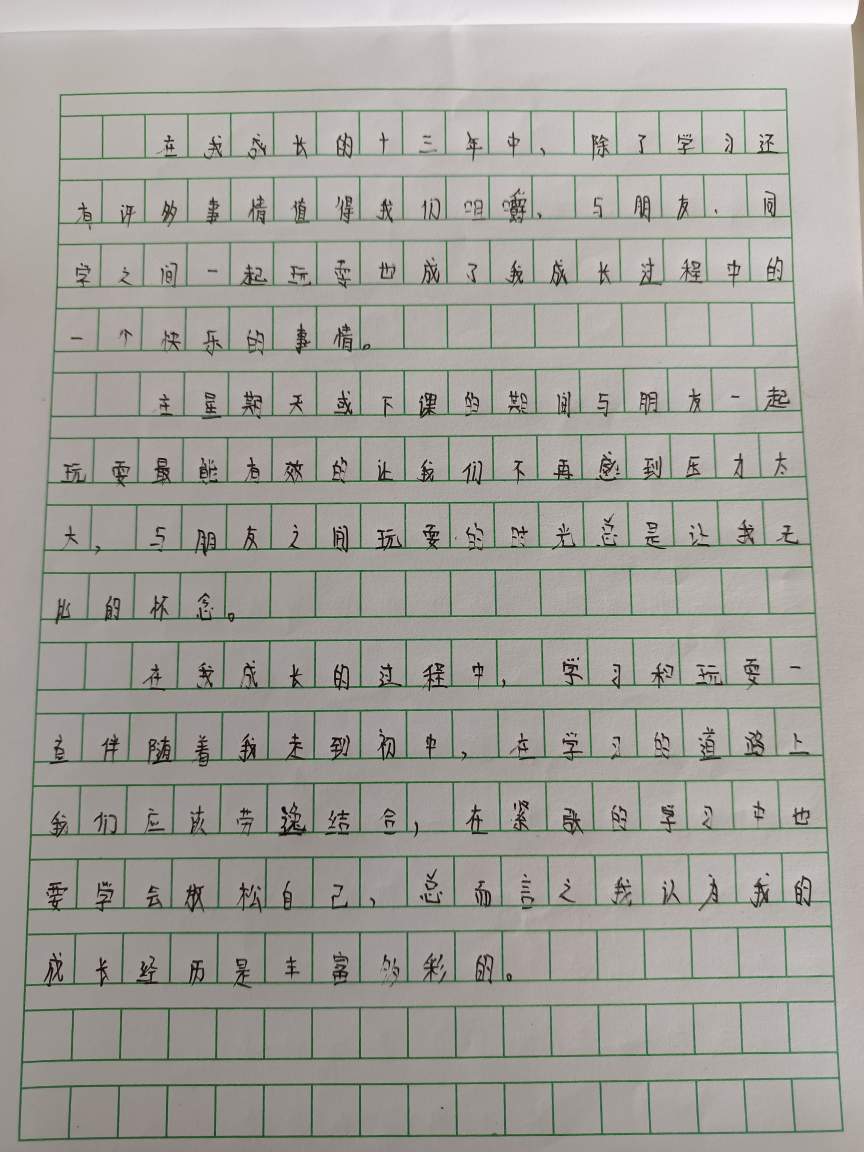 在我成长的十三年中、除了学习还
有许多事情值得我们咀嚼、与朋友、同
学之间一起玩耍也成了我成长过程中的
一个快乐的事情。
在星期天或下课的期间与朋友一起
玩耍最能有效的让我们不再感到压力太
大，与朋友之间玩耍的时光总是让我无
比的怀念。
在我成长的过程中，学习和玩耍一
直伴随着我走到初中，在学习的道路上
我们应该劳逸结合，在紧张的学习中也
要学会放松自己，总而言之我认为我的
成长经历是丰富多彩的。